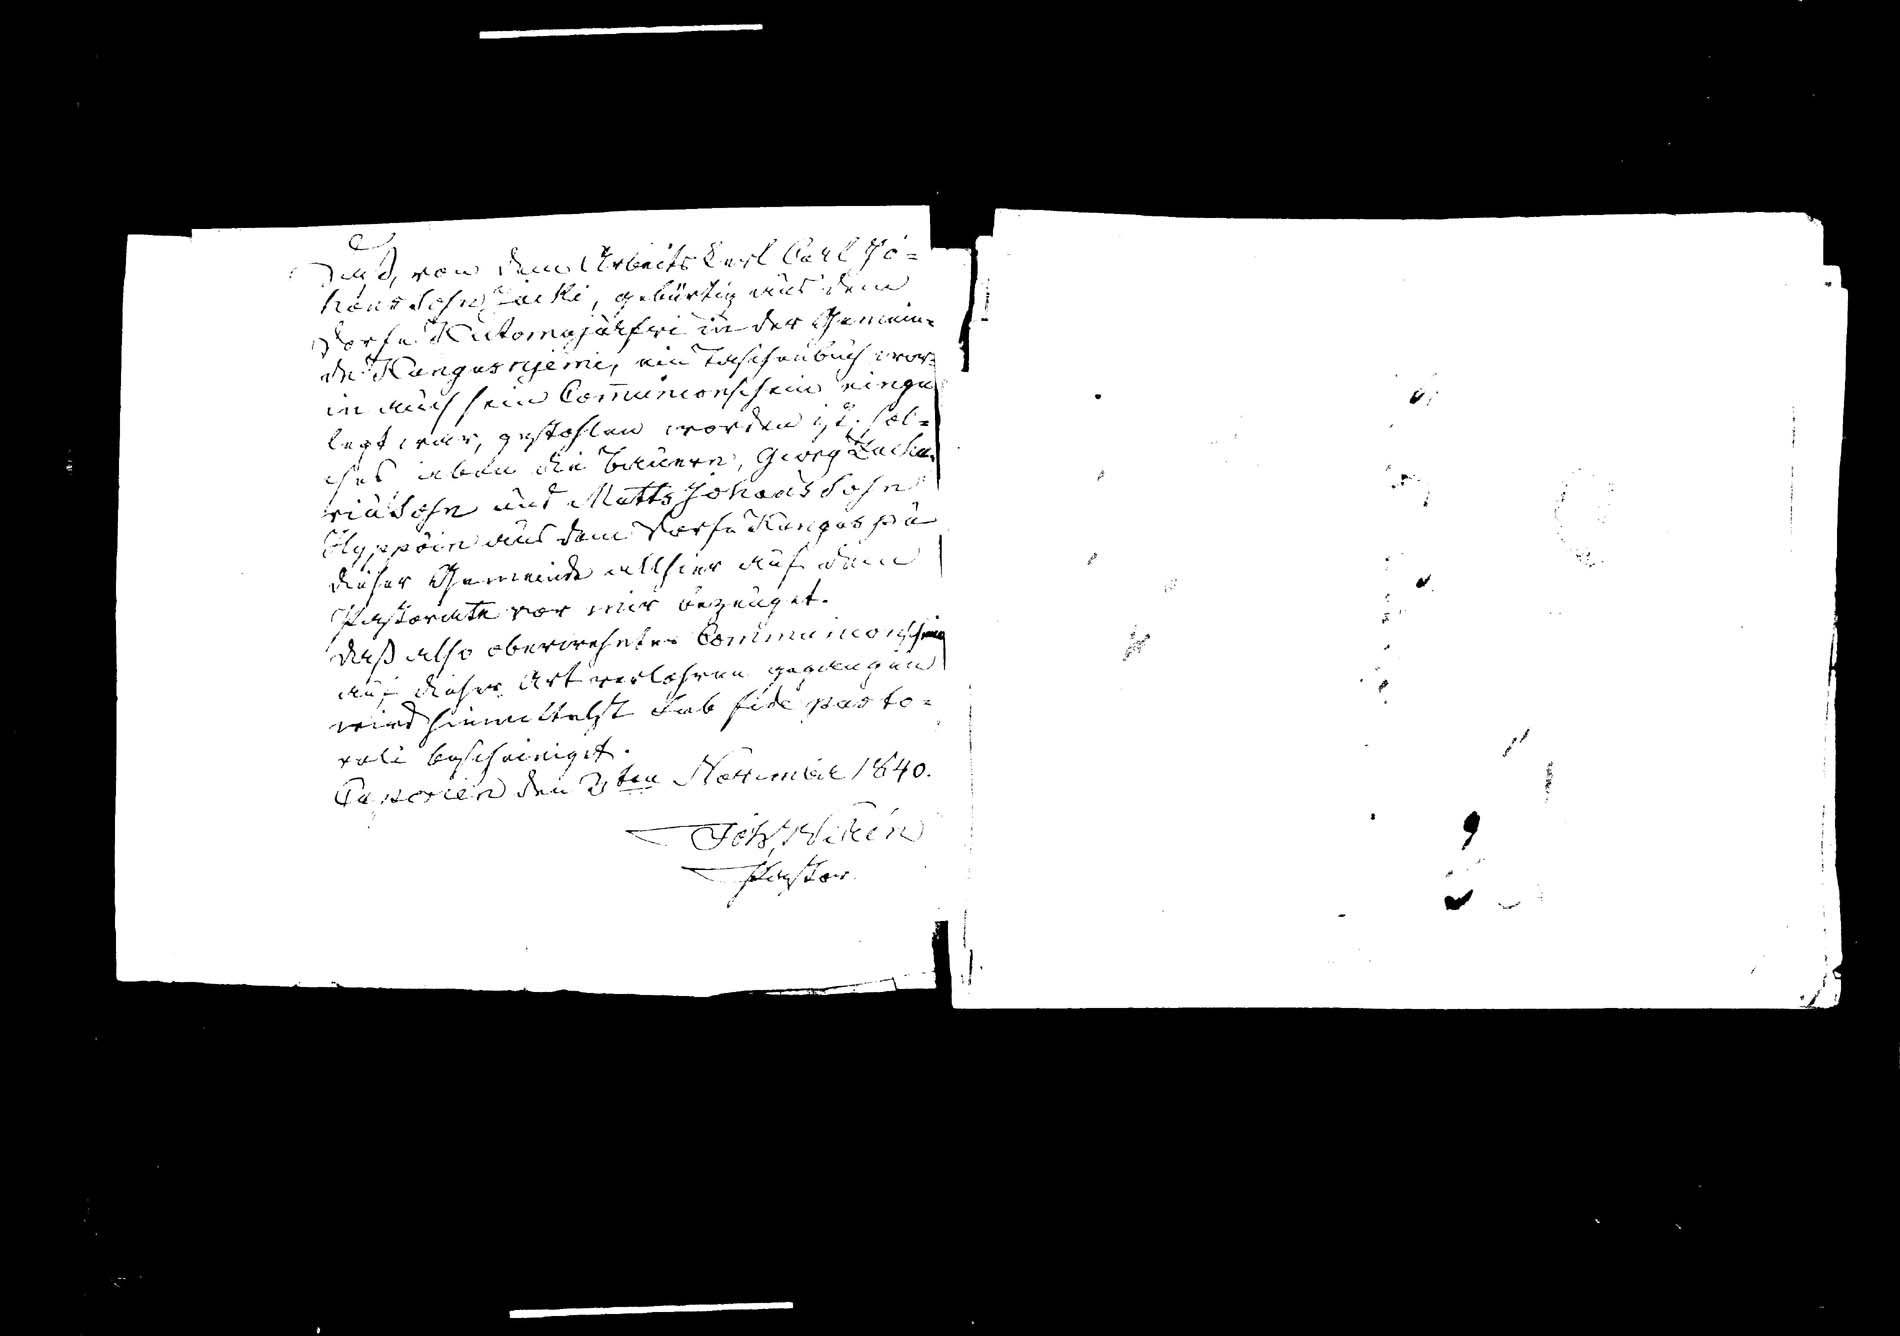 Daß, von dem Arbeits Kerl Carl Jo-
hans Sohn Jacki, gebürtig aus dem
Dorfe Kutomajärfvi in der Gemein-
de Kangasnjemi, ein Taschenbuch wor-
in auch sein Com̅unionschein einge
legt war, gestohlen worden ist. Sol-
ches haben die Bauern, Georg Zacha-
riä Sohn und Matts Johans Sohn
Hyppöin aus dem Dorfe Kangaspä
dieser Gemeinde allhier auf dem
Pastorate vor mir bezeuget.
Daß also oberwehnter Communionschein
auf dieser Art verlohren gegangen
wird hiemittelst sub fide pasto-
rali bescheiniget.
Caporien den 3ten November 1840.
Joh,
Pastor.